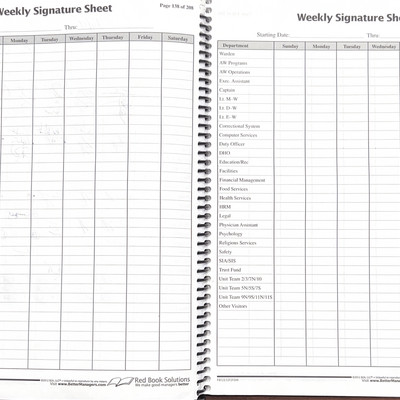 Weekly Signature Sheet
Page 138 of 208
Thru:
Monday Tuesday Wednesday Thursday Friday Saturday
Visit www.BetterManagers.com
Red Book Solutions
We make good managers better
Weekly Signature She
Starting Date: Thru:
Department Sunday Monday Tuesday Wednesday
Warden
AW Programs
AW Operations
Exec. Assistant
Captain
Lt. M-W
Lt. D-W
Lt. E-W
Correctional System
Computer Services
Duty Officer
DHO
Education/Rec
Facilities
Financial Management
Food Services
Health Services
HRM
Legal
Physician Assistant
Psychology
Religious Services
Safety
SIA/SIS
Trust Fund
Unit Team 2/3/7N/10
Unit Team 5N/5S/7S
Unit Team 9N/9S/11N/11S
Other Visitors
Visit www.BetterManagers.com